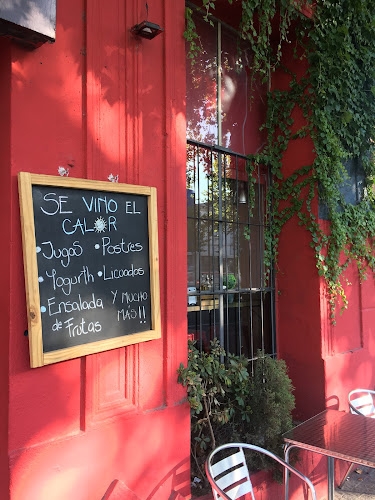 SE VINO EL
CALOR
• Jugos • Postres
• Yogurth • Licuados
• Ensalada Y MUCHO
de Frutas MÁS!!